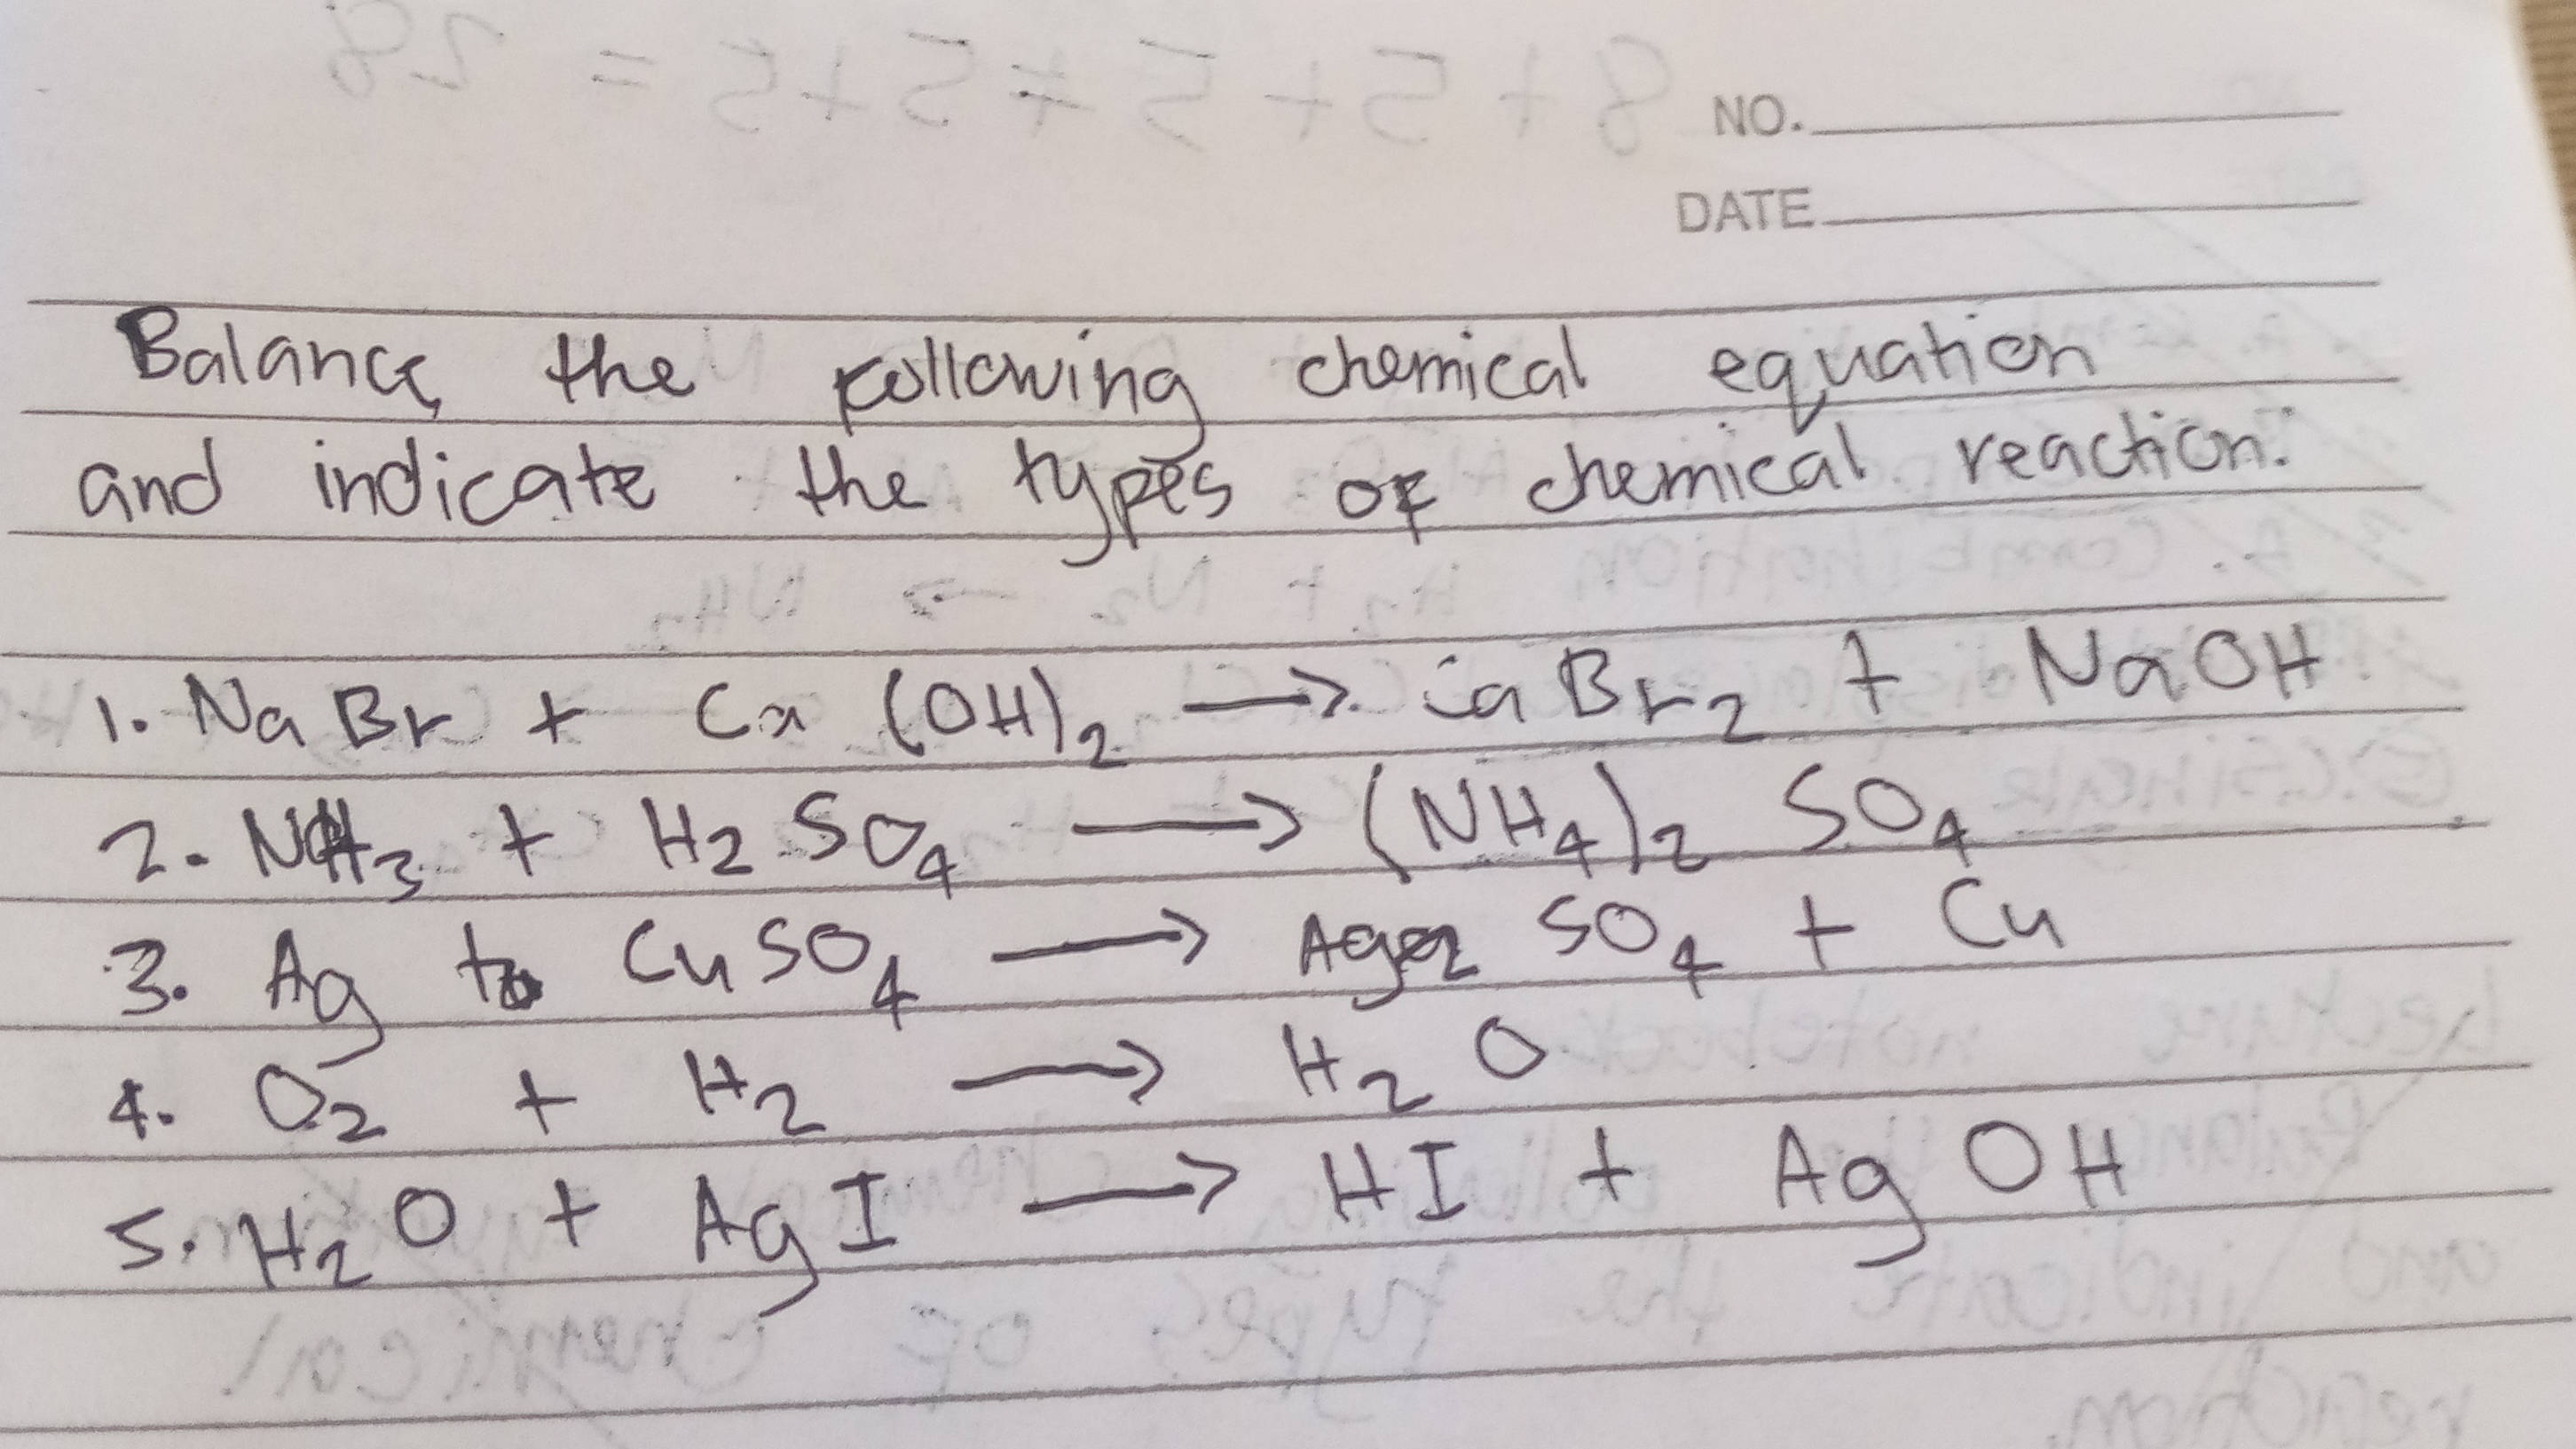 8 + 5 + 5 + 5 + 5 = 28
NO.
DATE
Balance the following chemical equation
and indicate the types of chemical reaction:
1. NaBr + Ca (OH)2 → CaBr2 + NaOH
2. NH3 + H2SO4 → (NH4)2 SO4
3. Ag + CuSO4 → Ag2 SO4 + Cu
4. O2 + H2 → H2O
5. H2O + AgI → HI + AgOH